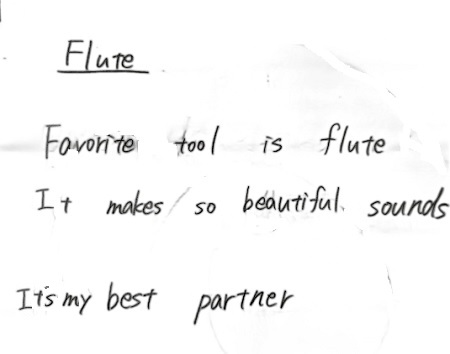 Flute
Favorite tool is flute
It makes so beautiful sounds
It's my best partner